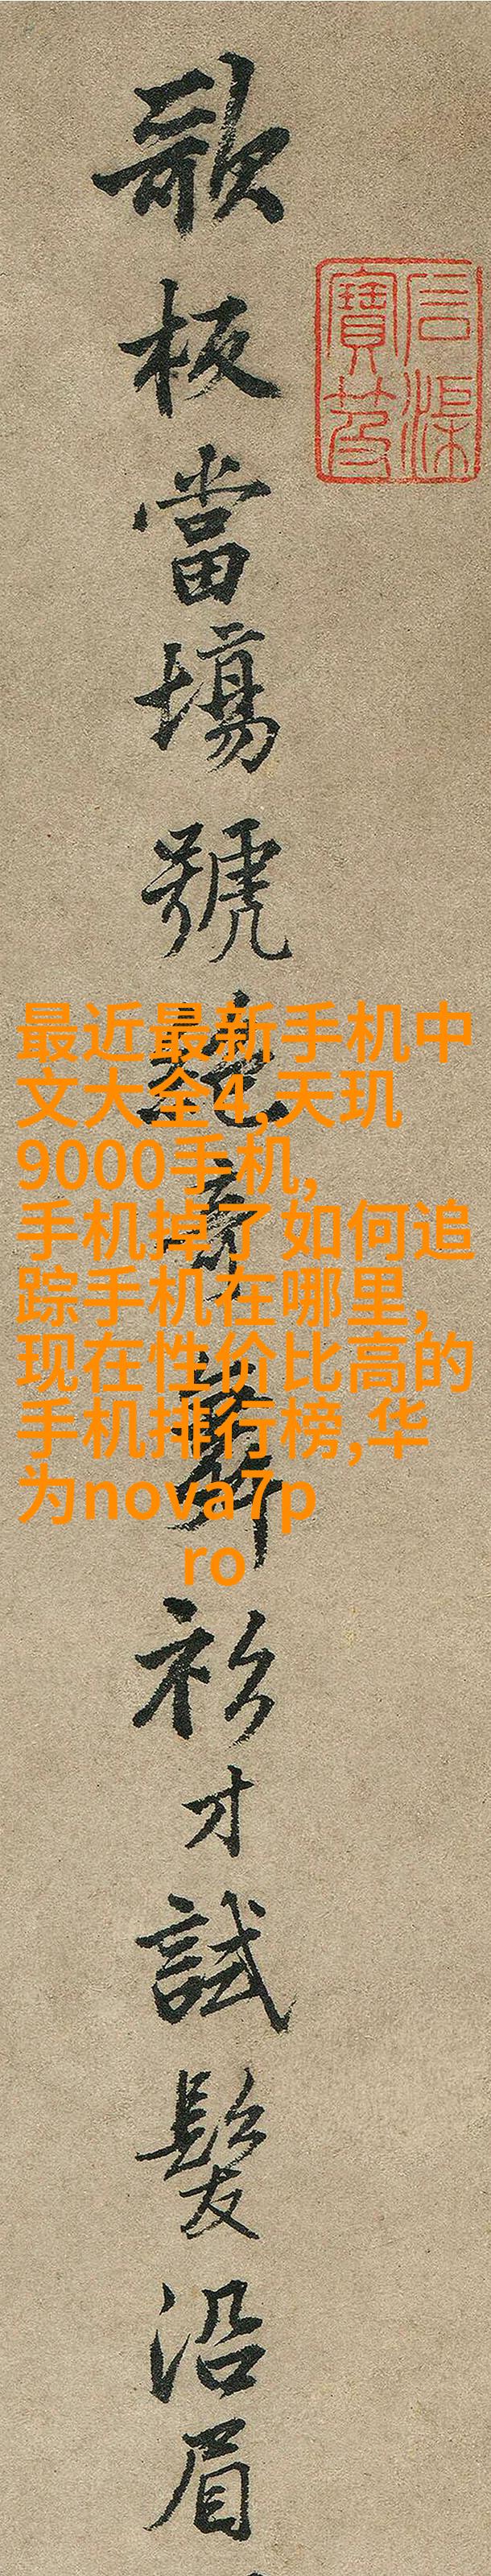 歌板當場號絕奇舞衫才試髮沿眉
石渠
寶笈
最近最新手机中
文大全4,天玑
9000手机,
手机掉了如何追
踪手机在哪里,
现在性价比高的
手机排行榜,华
为nova7p
ro